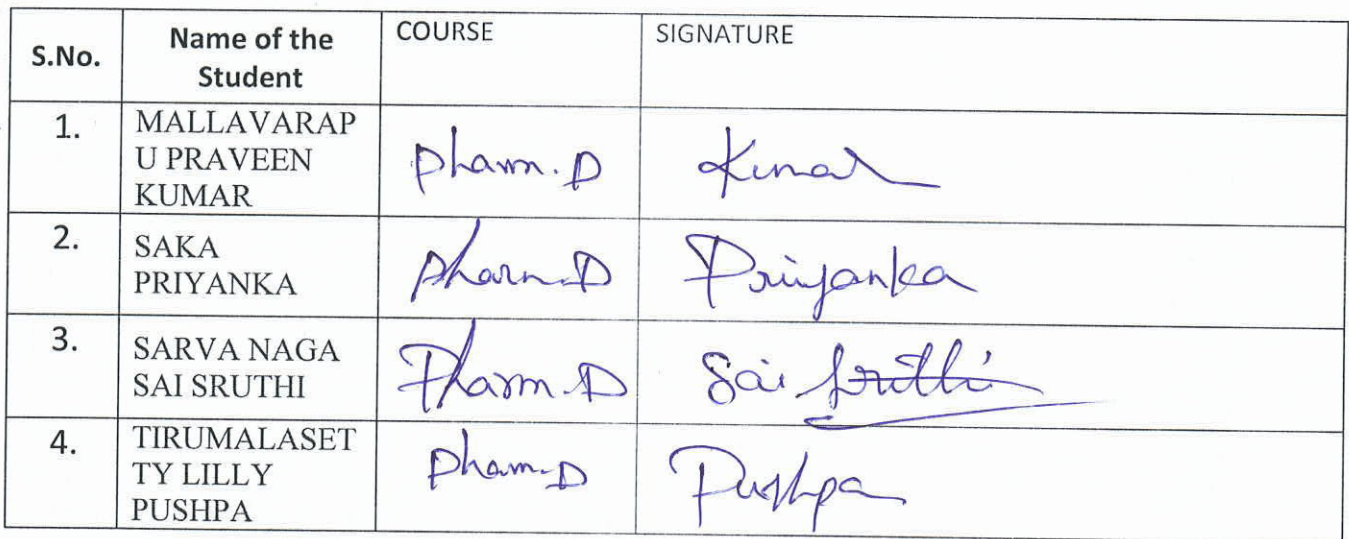 S.No. Name of the Student COURSE SIGNATURE
1. MALLAVARAP
U PRAVEEN
KUMAR
Pharm.D Kumar
2. SAKA
PRIYANKA
Pharm.D Priyanka
3. SARVA NAGA
SAI SRUTHI
Pharm.D Sai Sruthi
4. TIRUMALASET
TY LILLY
PUSHPA
Pharm.D Pushpa